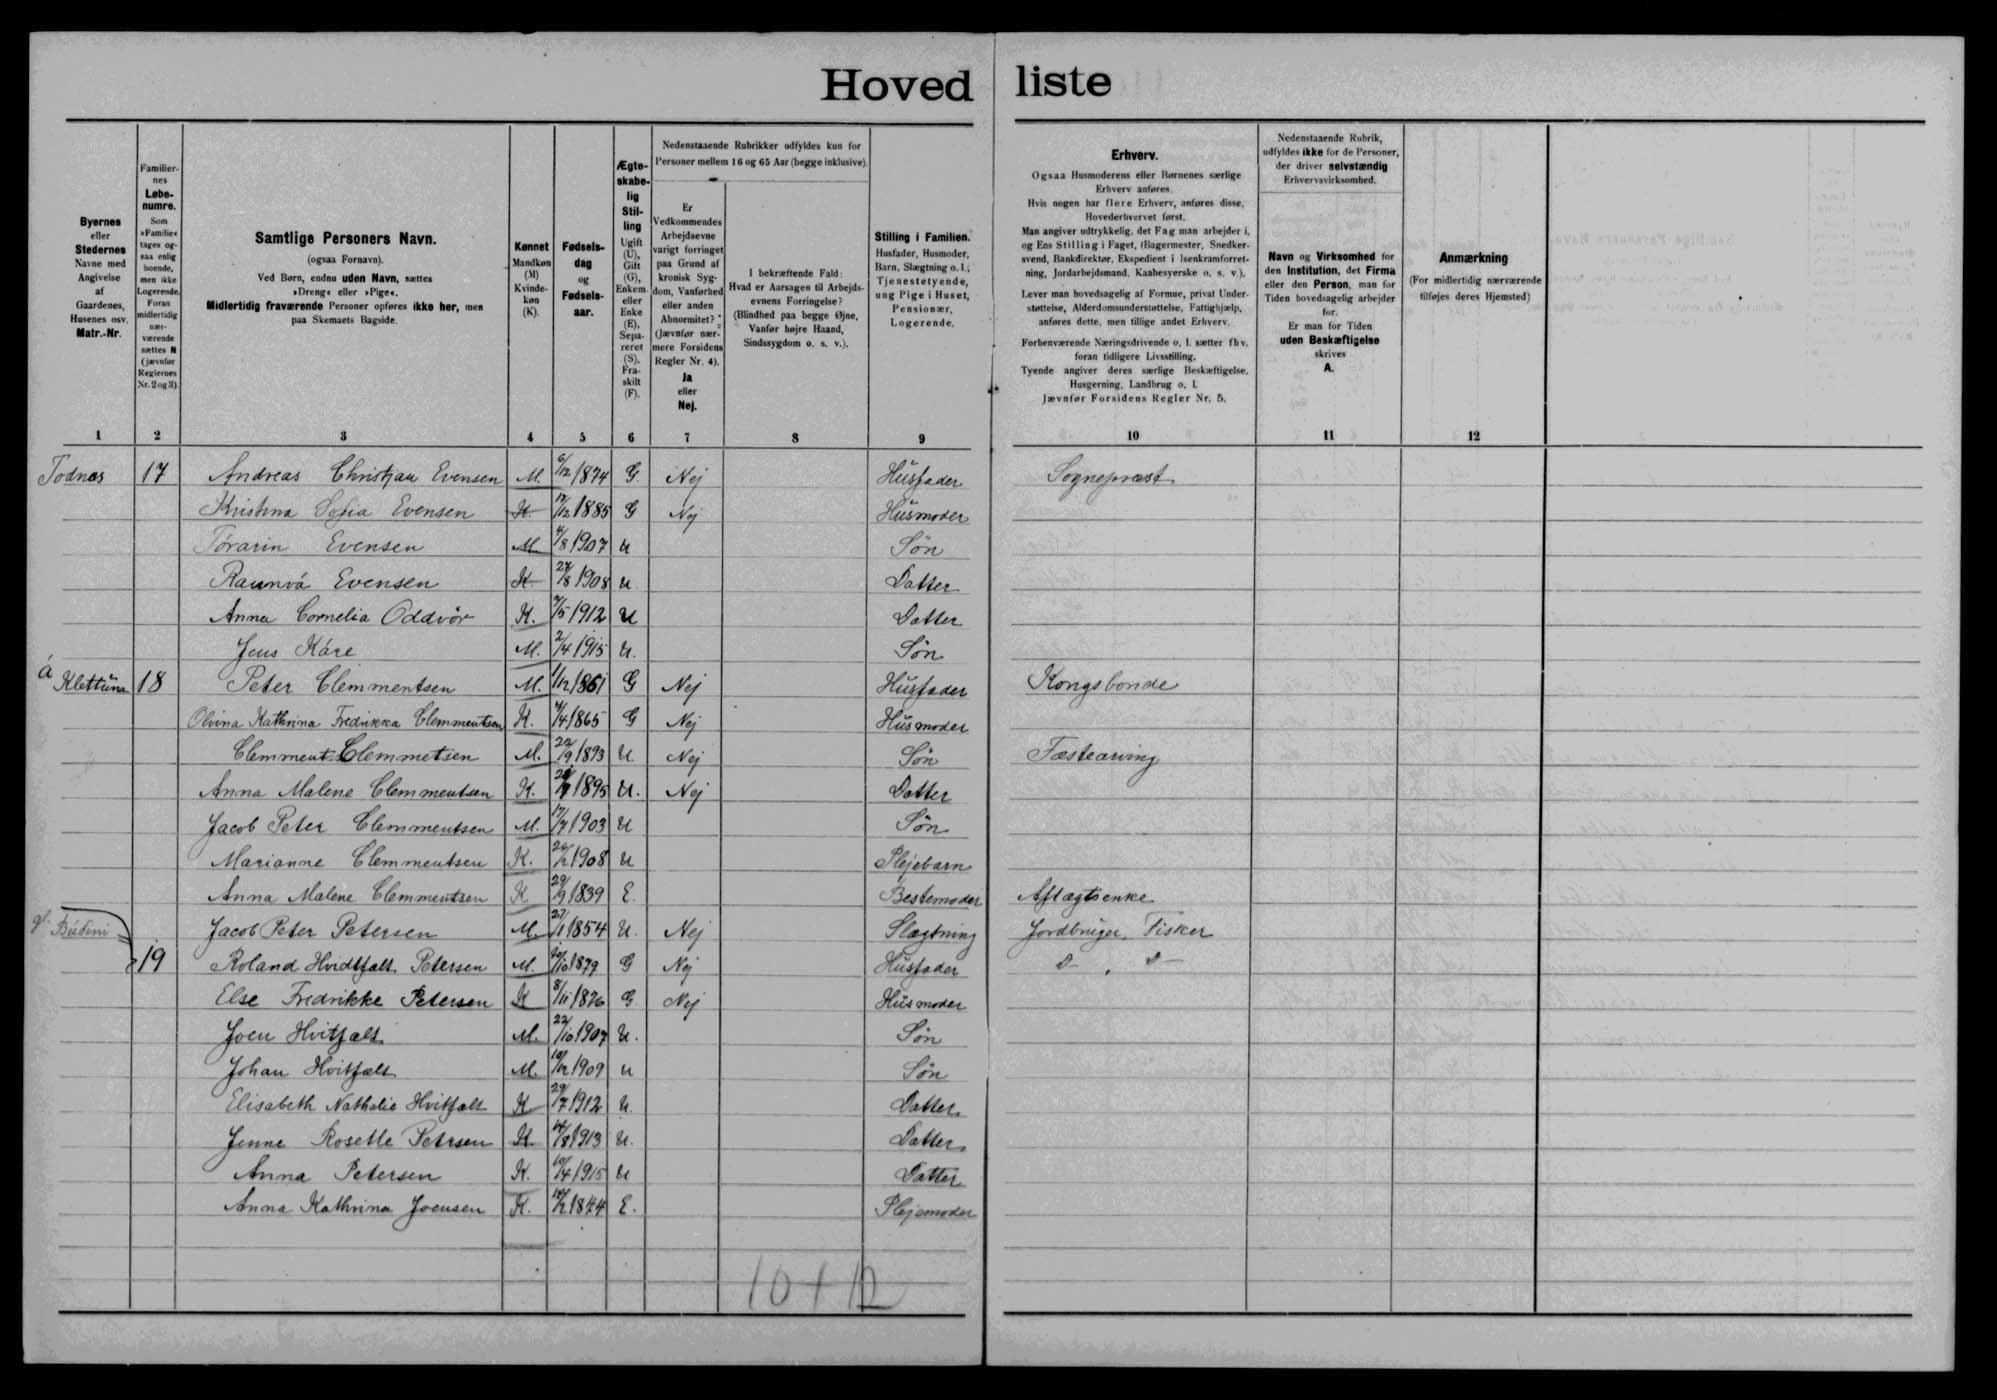 Hoved liste
Byernes
eller
Stedernes
Navne med
Angivelse
af
Gaardenes,
Husenes osv.
Matr.-Nr.
Familier-
nes
Løbe-
numre.
Som
»Familie«
tages og-
saa enlig
boende,
men ikke
Logerende.
Foran
midlertidig
nær-
værende
sættes N
(jævnfør
Reglernes
Nr. 2 og 3).
Samtlige Personers Navn.
(ogsaa Fornavn).
Ved Børn, endnu uden Navn, sættes
»Dreng« eller »Pige«.
Midlertidig fraværende Personer opføres ikke her, men
paa Skemaets Bagside.
Kønnet
Mandkøn
(M)
Kvinde-
køn
(K).
Fødsels-
dag
og
Fødsels-
aar.
Ægte-
skabe-
lig
Stil-
ling
Ugift
(U),
Gift
(G),
Enkem.
eller
Enke
(E),
Sepa-
reret
(S).
Fra-
skilt
(F).
Nedenstaaende Rubrikker udfyldes kun for
Personer mellem 16 og 65 Aar (begge inklusive).
Er
Vedkommendes
Arbejdsevne
varigt forringet
paa Grund af
kronisk Syg-
dom, Vanførhed
eller anden
Abnormitet?
(Jævnfør nær-
mere Forsidens
Regler Nr. 4).
Ja
eller
Nej.
I bekræftende Fald:
Hvad er Aarsagen til Arbejds-
evnens Forringelse?
(Blindhed paa begge Øjne,
Vanfør højre Haand,
Sindssygdom o. s. v.).
Stilling i Familien.
Husfader, Husmoder,
Barn, Slægtning o. l.;
Tjenestetyende,
ung Pige i Huset,
Pensionær,
Logerende.
Erhverv.
Ogsaa Husmoderens eller Børnenes særlige
Erhverv anføres.
Hvis nogen har flere Erhverv, anføres disse,
Hovederhvervet først.
Man angiver udtrykkelig, det Fag man arbejder i,
og Ens Stilling i Faget, (Bagermester, Snedker-
svend, Bankdirektør, Ekspedient i Isenkramforret-
ning, Jordarbejdsmand, Kaabesyerske o. s. v.).
Lever man hovedsagelig af Formue, privat Under-
støttelse, Alderdomsunderstøttelse, Fattighjælp,
anføres dette, men tillige andet Erhverv.
Forhenværende Næringsdrivende o. l. sætter fhv.
foran tidligere Livsstilling.
Tyende angiver deres særlige Beskæftigelse,
Husgerning, Landbrug o. l.
Jævnfør Forsidens Regler Nr. 5.
Nedenstaaende Rubrik,
udfyldes ikke for de Personer,
der driver selvstændig
Erhvervsvirksomhed.
Navn og Virksomhed for
den Institution, det Firma
eller den Person, man for
Tiden hovedsagelig arbejder
for.
Er man for Tiden
uden Beskæftigelse
skrives
A.
Anmærkning
(For midlertidig nærværende
tilføjes deres Hjemsted)
1 2 3 4 5 6 7 8 9 10 11 12
Todnes 17 Andreas Christian Evensen M. 6/12 1874 G. Nej Husfader Sognepræst
Kristina Sofia Evensen K. 12/12 1885 G Nej Husmoder
Tórarin Evensen M. 4/8 1907 U Søn
Raunvá Evensen K 24/8 1908 U. Datter
Anna Cornelia Oddvör K. 7/5 1912 U Datter
Jens Káre M. 2/4 1915 U. Søn
á Klettúna 18 Peter Clemmentsen M. 1/12 1861 G Nej Husfader Kongsbonde
Olvina Kathrina Fredrikka Clemmentsen K. 4/4 1865 G Nej Husmoder
Clemment Clemmetsen M. 22/9 1893 U. Nej Søn Fæstearving
Anna Malene Clemmentsen K. 1895 U. Nej Datter
Jacob Peter Clemmentsen M. 17/7 1903 U Søn
Marianne Clemmentsen K. 1908 U Plejebarn
Anna Malene Clemmentsen K 29/9 1839 E. Bestemoder Aftægtsenke
Jacob Peter Petersen M. 27/11 1854 U. Nej Slægtning Jordbruger, Fisker
19 Roland Hvidtfalt Petersen M. 1879 G Nej Husfader D- , D-
Else Fredrikke Petersen K 8/11 1876 G. Nej Husmoder
Joen Hvitfalt M. 22/10 1907 U. Søn
Johan Hvitfalt M. 10/12 1909 U Søn
Elisabeth Nathalie Hvitfalt K 29/7 1912 U. Datter
Jenne Rosette Petrsen K. 14/8 1913 U. Datter
Anna Petersen K. 10/4 1915 U Datter
Anna Kathrina Joensen K. 1844 E. Plejemoder
10 + 12